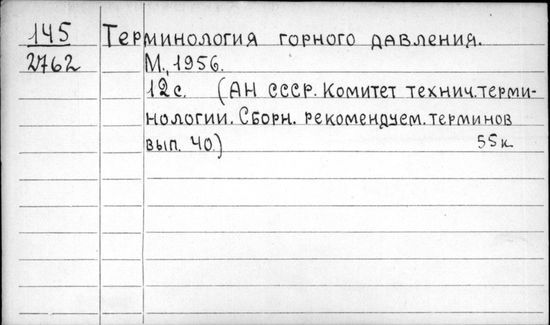 145 Терминология горного давления.
2762 М., 1956.
12 с. (АН СССР. Комитет технич. терми-
нологии. Сборн. рекомендуем. терминов
вып. 40.) 55 к